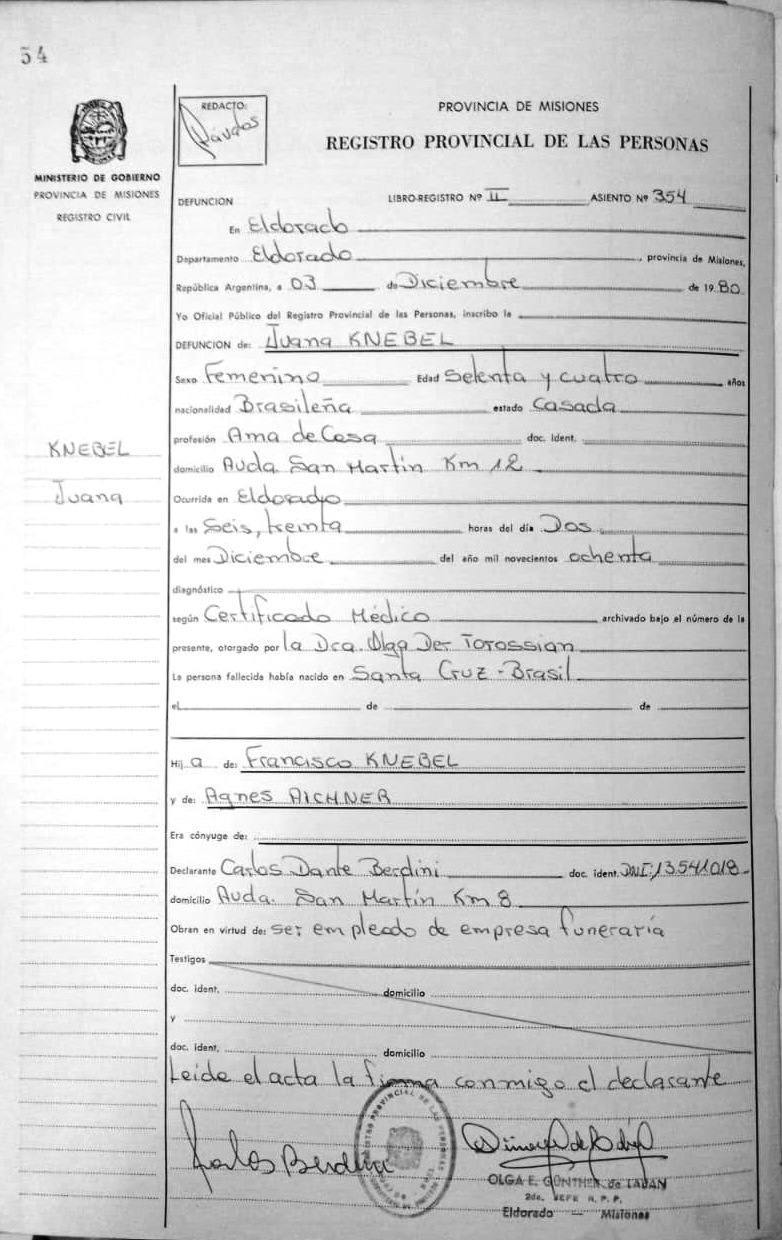 54
REDACTO:
PROVINCIA DE MISIONES
REGISTRO PROVINCIAL DE LAS PERSONAS
MINISTERIO DE GOBIERNO
PROVINCIA DE MISIONES
REGISTRO CIVIL
DEFUNCION LIBRO-REGISTRO Nº II ASIENTO Nº 354
En Eldorado
Departamento Eldorado, provincia de Misiones,
República Argentina, a 03 de Diciembre de 1980
Yo Oficial Público del Registro Provincial de las Personas, inscribo la
DEFUNCION de: Juana KNEBEL
Sexo Femenino Edad Setenta y cuatro años
nacionalidad Brasileña estado Casada
profesión Ama de Casa doc. Ident.
KNEBEL
domicilio Avda San Martín Km 12
Juana
Ocurrida en Eldorado
a las Seis, treinta horas del día Dos
del mes Diciembre del año mil novecientos ochenta
diagnóstico
según Certificado Médico archivado bajo el número de la
presente, otorgado por la Dra. Olga Der Torossian
La persona fallecida había nacido en Santa Cruz - Brasil
el de de
Hij a de: Francisco KNEBEL
y de: Agnes AICHNER
Era cónyuge de:
Declarante Carlos Dante Berdini doc. ident. DNI; 13541018
domicilio Avda. San Martín Km 8
Obran en virtud de: ser empleado de empresa funeraria
Testigos
doc. ident. domicilio
y
doc. ident. domicilio
Leida el acta la firma conmigo el declarante
Carlos Berdini
OLGA E. GÜNTHER de TABAN
2do. JEFE R. P. P.
Eldorado — Misiones